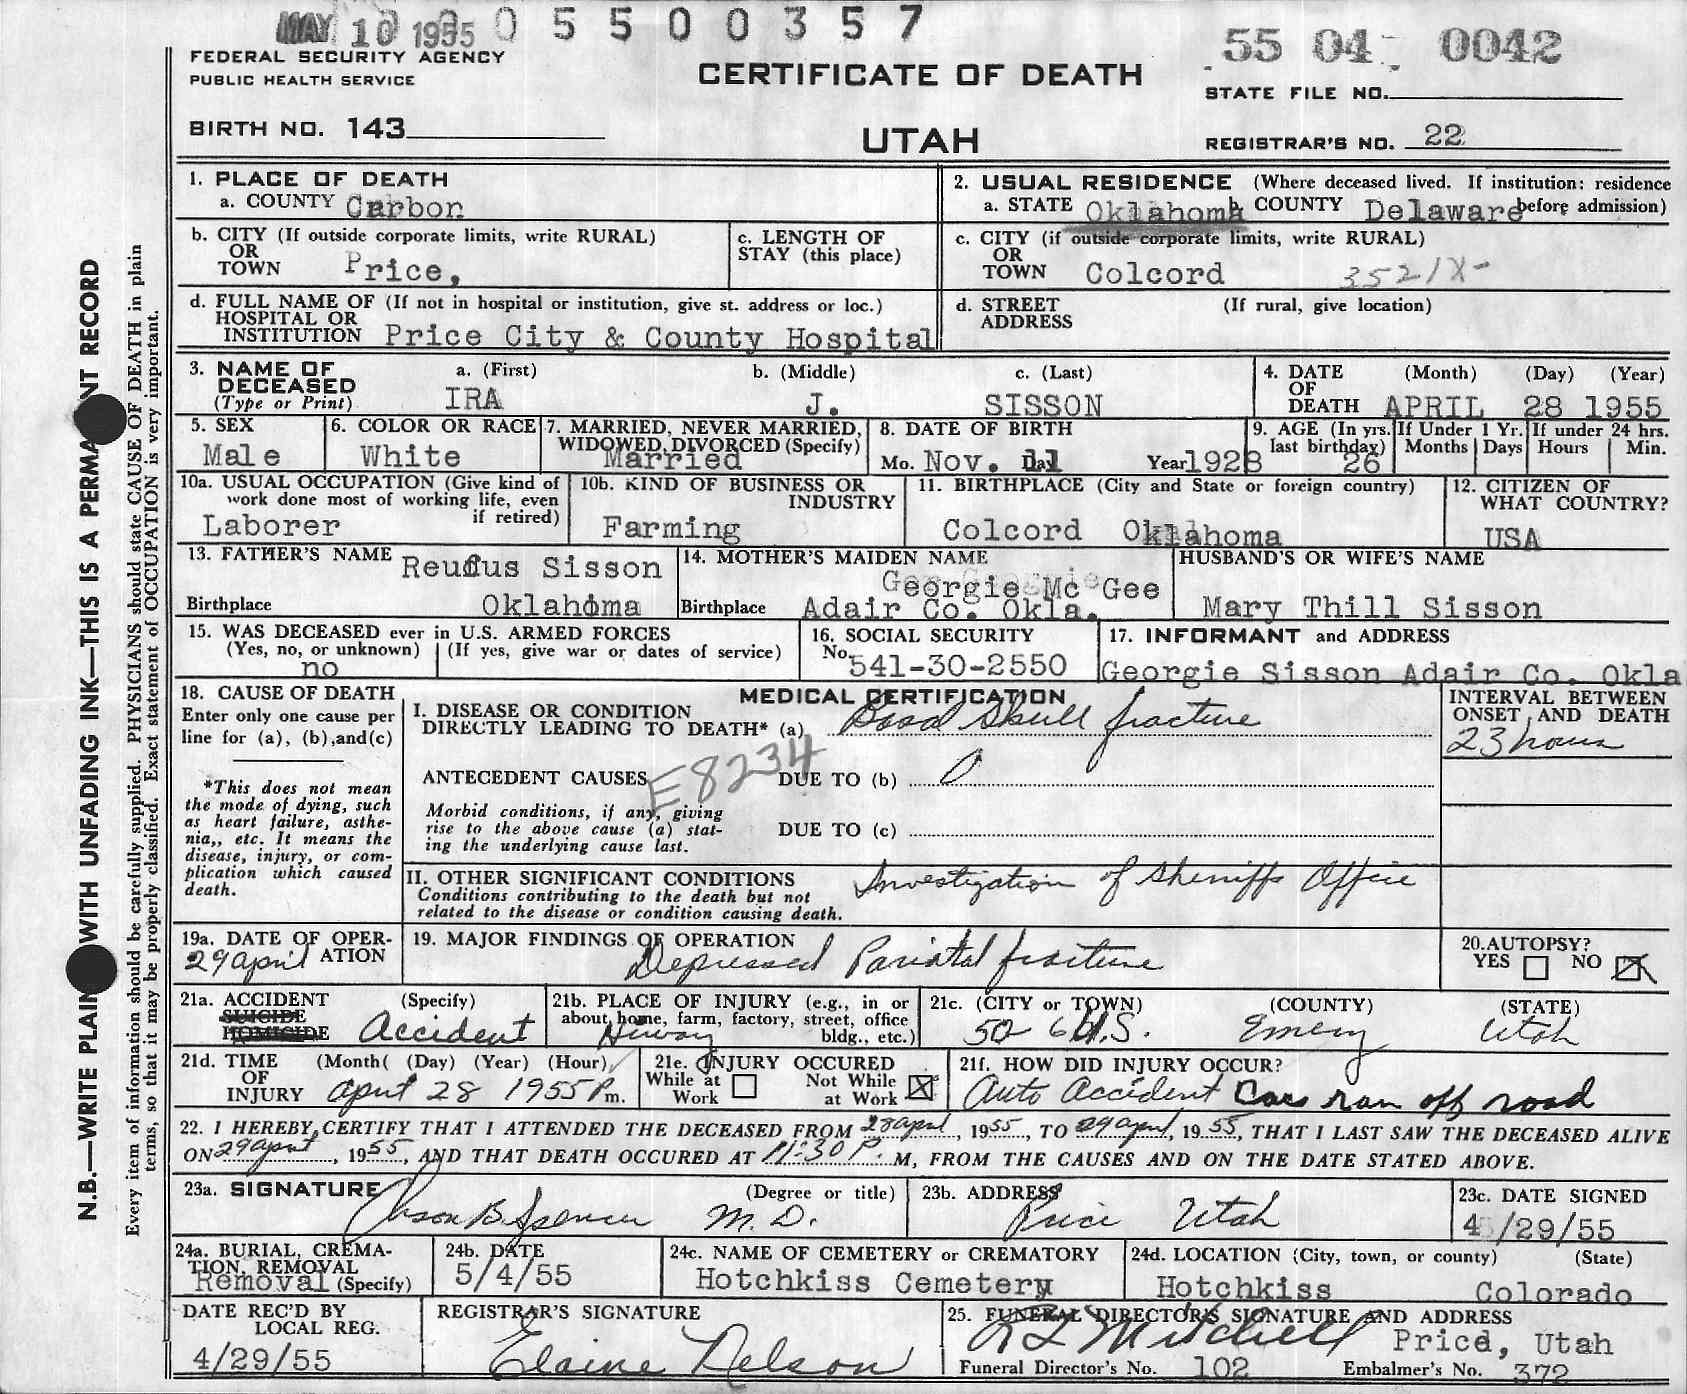 MAY 10 1955 0 5 5 0 0 3 5 7
55 04 0042
FEDERAL SECURITY AGENCY
PUBLIC HEALTH SERVICE
CERTIFICATE OF DEATH
STATE FILE NO.
BIRTH NO. 143
UTAH
REGISTRAR'S NO. 22
1. PLACE OF DEATH
a. COUNTY Carbon
2. USUAL RESIDENCE (Where deceased lived. If institution: residence before admission)
a. STATE Oklahoma b. COUNTY Delaware
b. CITY (If outside corporate limits, write RURAL)
OR
TOWN Price,
c. LENGTH OF
STAY (this place)
c. CITY (if outside corporate limits, write RURAL)
OR
TOWN Colcord 3521X-
d. FULL NAME OF (If not in hospital or institution, give st. address or loc.)
HOSPITAL OR
INSTITUTION Price City & County Hospital
d. STREET (If rural, give location)
ADDRESS
3. NAME OF
DECEASED
(Type or Print)
a. (First) b. (Middle) c. (Last)
IRA J. SISSON
4. DATE (Month) (Day) (Year)
OF
DEATH APRIL 28 1955
5. SEX
Male
6. COLOR OR RACE
White
7. MARRIED, NEVER MARRIED,
WIDOWED, DIVORCED (Specify)
Married
8. DATE OF BIRTH
Mo. Nov. Year 1928
9. AGE (In yrs. last birthday) 26
If Under 1 Yr. Months Days
If under 24 hrs. Hours Min.
10a. USUAL OCCUPATION (Give kind of
work done most of working life, even
if retired)
Laborer
10b. KIND OF BUSINESS OR
INDUSTRY
Farming
11. BIRTHPLACE (City and State or foreign country)
Colcord Oklahoma
12. CITIZEN OF
WHAT COUNTRY?
USA
13. FATHER'S NAME Reufus Sisson
Birthplace Oklahoma
14. MOTHER'S MAIDEN NAME
Georgie Mc Gee
Birthplace Adair Co. Okla.
HUSBAND'S OR WIFE'S NAME
Mary Thill Sisson
15. WAS DECEASED ever in U.S. ARMED FORCES
(Yes, no, or unknown) (If yes, give war or dates of service)
no
16. SOCIAL SECURITY
No. 541-30-2550
17. INFORMANT and ADDRESS
Georgie Sisson Adair Co. Okla
18. CAUSE OF DEATH
Enter only one cause per
line for (a), (b),and(c)
*This does not mean
the mode of dying, such
as heart failure, asthe-
nia,, etc. It means the
disease, injury, or com-
plication which caused
death.
MEDICAL CERTIFICATION
I. DISEASE OR CONDITION
DIRECTLY LEADING TO DEATH* (a) Skull fracture
ANTECEDENT CAUSES DUE TO (b)
E8234
Morbid conditions, if any, giving
rise to the above cause (a) stat-
ing the underlying cause last.
DUE TO (c)
INTERVAL BETWEEN
ONSET AND DEATH
23 hours
II. OTHER SIGNIFICANT CONDITIONS
Conditions contributing to the death but not
related to the disease or condition causing death.
Investigation of Sheriffs Office
19a. DATE OF OPER-
ATION
29 april
19. MAJOR FINDINGS OF OPERATION
Depressed Parietal fracture
20.AUTOPSY?
YES NO
21a. ACCIDENT (Specify)
SUICIDE
HOMICIDE
Accident
21b. PLACE OF INJURY (e.g., in or
about home, farm, factory, street, office
bldg., etc.)
Hiway
21c. (CITY or TOWN) (COUNTY) (STATE)
50 6 U.S. Emery Utah
21d. TIME (Month( (Day) (Year) (Hour)
OF
INJURY April 28 1955 P m.
21e. INJURY OCCURED
While at Work
Not While at Work
21f. HOW DID INJURY OCCUR?
Auto Accident Cars ran off road
22. I HEREBY CERTIFY THAT I ATTENDED THE DECEASED FROM 28 april, 1955, TO 29 april, 1955, THAT I LAST SAW THE DECEASED ALIVE
ON 29 april, 1955, AND THAT DEATH OCCURED AT 11:30 P. M, FROM THE CAUSES AND ON THE DATE STATED ABOVE.
23a. SIGNATURE (Degree or title)
Orson B. Spencer M.D.
23b. ADDRESS
Price Utah
23c. DATE SIGNED
4/29/55
24a. BURIAL, CREMA-
TION, REMOVAL
Removal (Specify)
24b. DATE
5/4/55
24c. NAME OF CEMETERY or CREMATORY
Hotchkiss Cemetery
24d. LOCATION (City, town, or county) (State)
Hotchkiss Colorado
DATE REC'D BY
LOCAL REG.
4/29/55
REGISTRAR'S SIGNATURE
Elaine Nelson
25. FUNERAL DIRECTOR'S SIGNATURE AND ADDRESS
Mitchell Price, Utah
Funeral Director's No. 102 Embalmer's No. 372
N.B.—WRITE PLAIN WITH UNFADING INK—THIS IS A PERMA NT RECORD
Every item of information should be carefully supplied. PHYSICIANS should state CAUSE OF DEATH in plain
terms, so that it may be properly classified. Exact statement of OCCUPATION is very important.